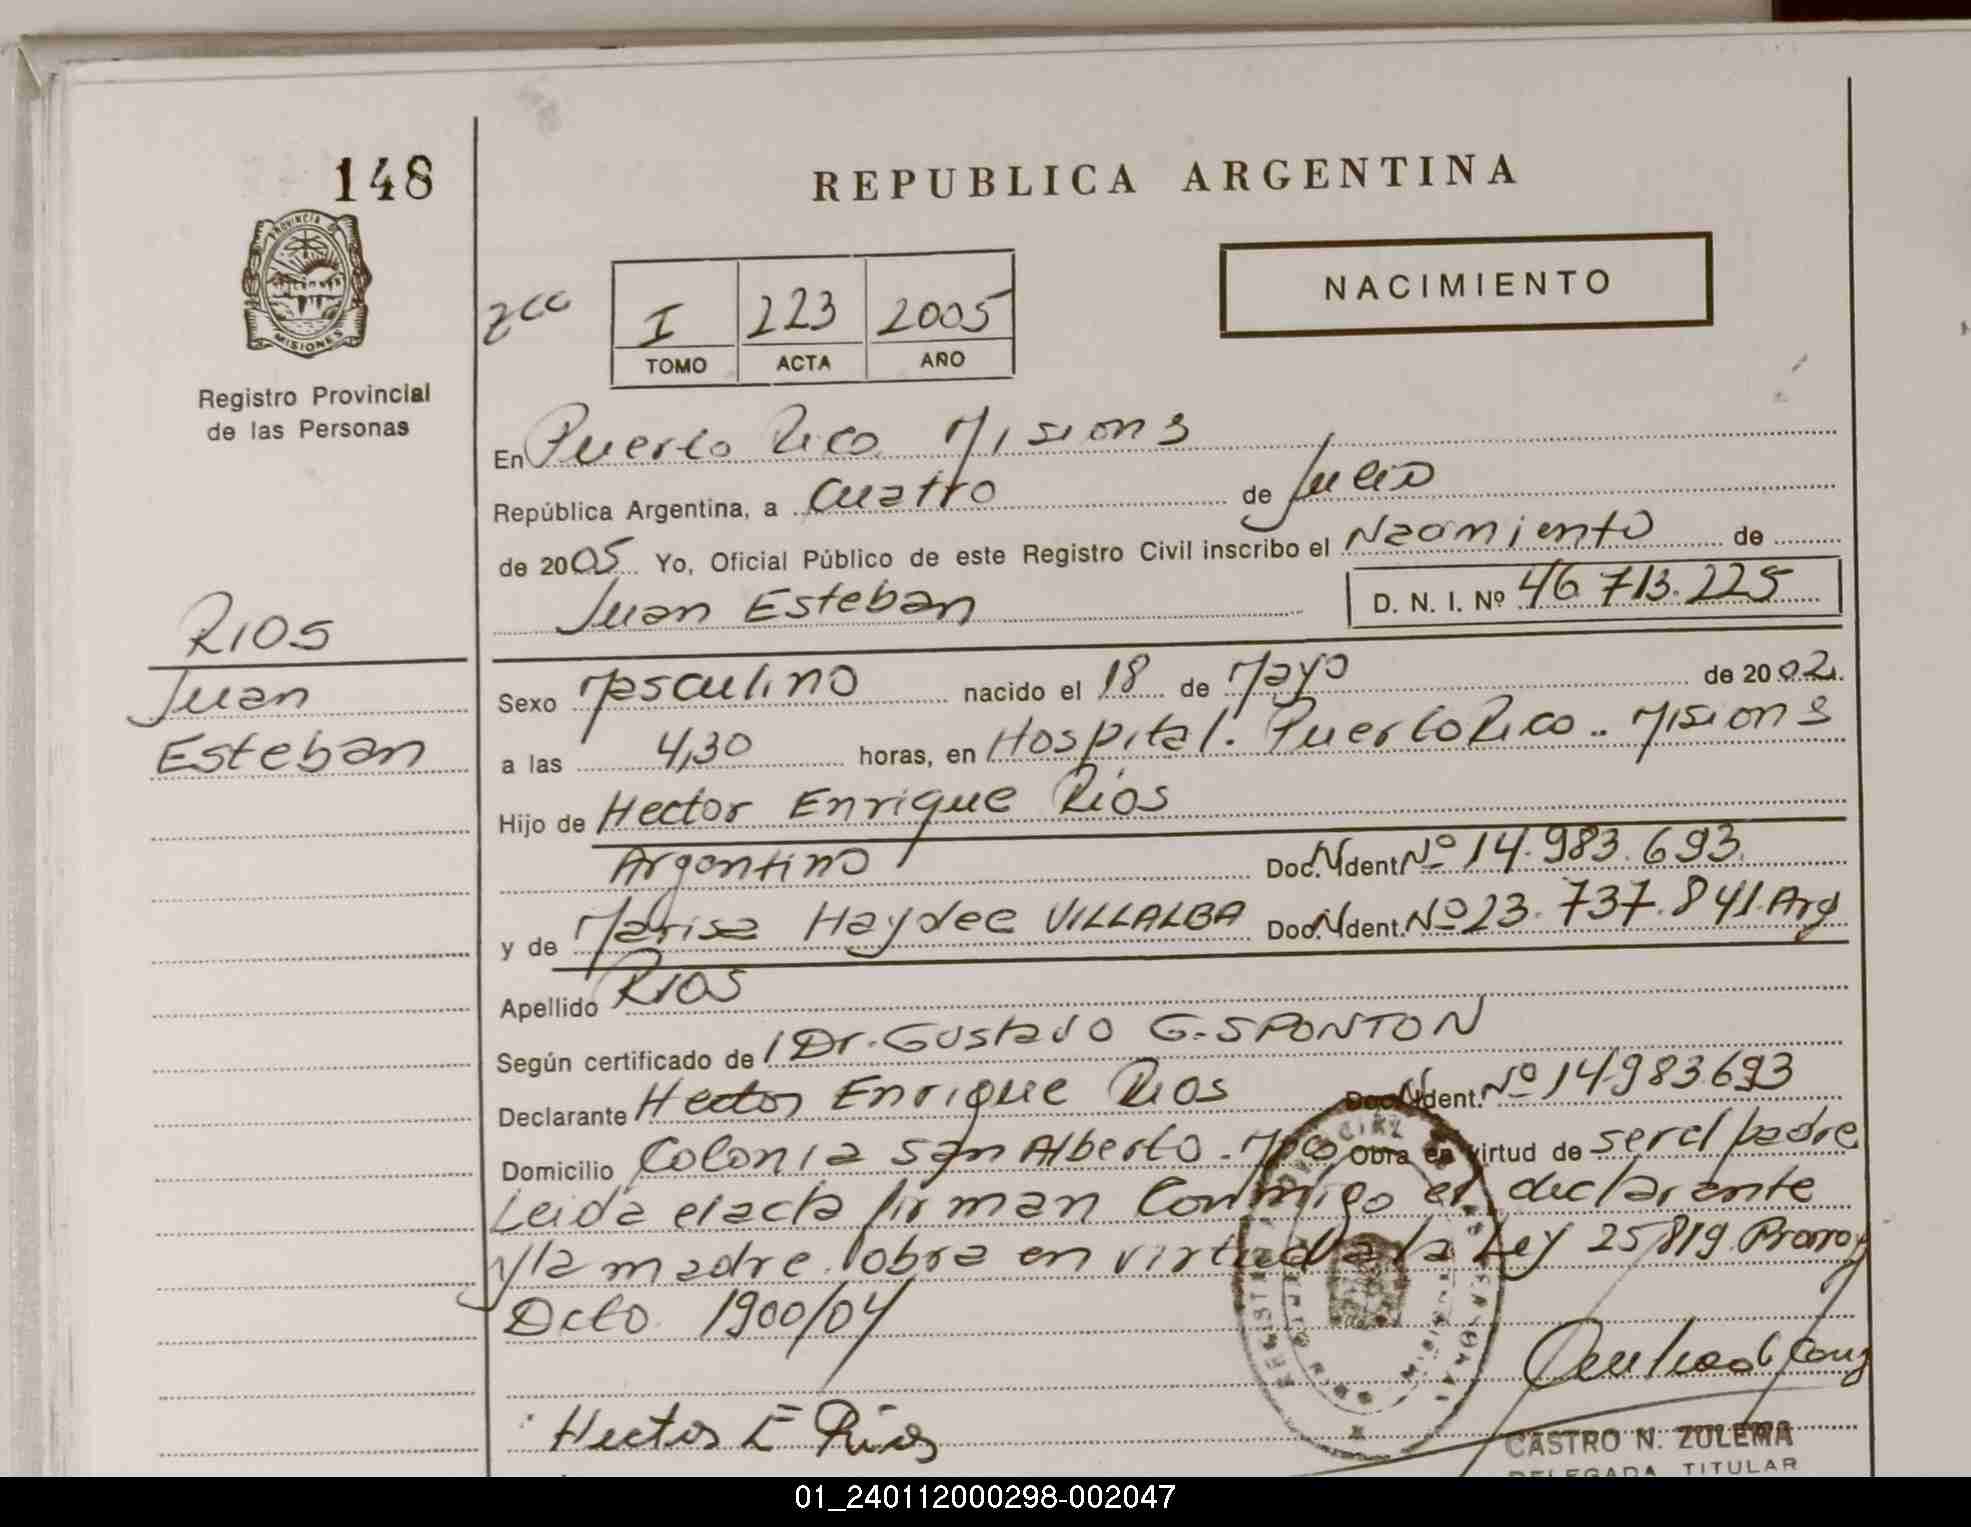 148
REPUBLICA ARGENTINA
PROVINCIA DE
MISIONES
Registro Provincial
de las Personas
I 223 2005
TOMO ACTA AÑO
NACIMIENTO
En Puerto Rico Misions
República Argentina, a Cuatro de Julio
de 2005 Yo, Oficial Público de este Registro Civil inscribo el Nacimiento de
Juan Esteban D. N. I. Nº 46 713.225
RIOS
Juan
Esteban
Sexo Masculino nacido el 18 de Mayo de 2002.
a las 4,30 horas, en Hospital. Puerto Rico.. Misions
Hijo de Hector Enrique Rios
Argentino Doc. Ident. Nº 14.983.693.
y de Marisa Haydee VILLALBA Doc. Ident. Nº 23.737.841. Arg
Apellido RIOS
Según certificado de Dr. Gustavo G. SPONTON
Declarante Hector Enrique Rios Doc. Ident. Nº 14983693
Domicilio Colonia San Alberto. Obra en virtud de ser el padre
Leida el acta firman Conmigo el declarante
y la madre. obra en virtud a la Ley 25819. Prorrog
Dcto. 1900/04
Hector E Rios
CASTRO N. ZULEMA
DELEGADA TITULAR
01_240112000298-002047